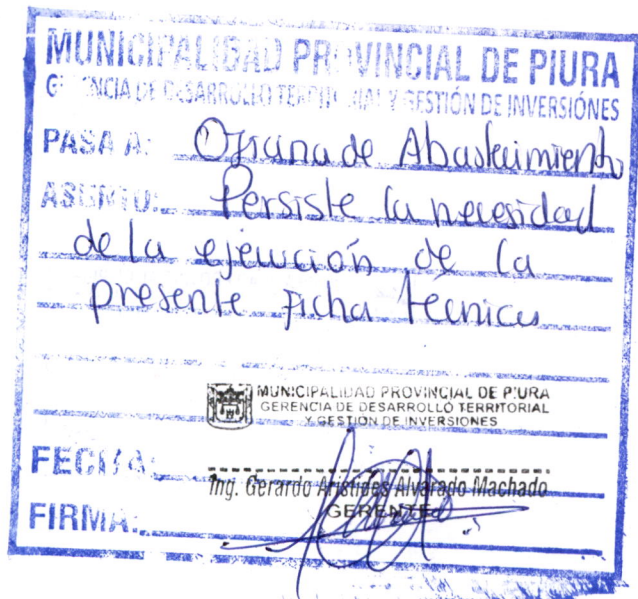 MUNICIPALIDAD PROVINCIAL DE PIURA
GERENCIA DE DESARROLLO TERRITORIAL Y GESTIÓN DE INVERSIÓNES
PASA A: Oficina de Abastecimiento
ASUNTO: Persiste la necesidad
de la ejecución de la
presente Ficha Técnica
MUNICIPALIDAD PROVINCIAL DE PIURA
GERENCIA DE DESARROLLO TERRITORIAL
Y GESTIÓN DE INVERSIONES
FECHA:
Ing. Gerardo Arístides Alvarado Machado
GERENTE
FIRMA: